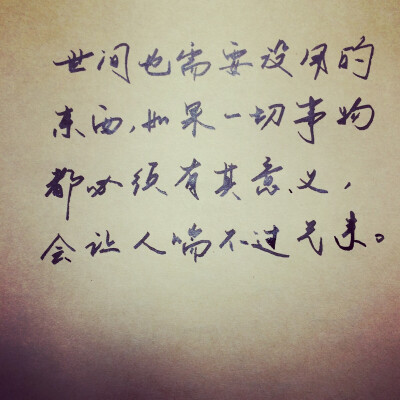 世间也需要没用的
东西，如果一切事物
都必须有其意义，
会让人喘不过气来。